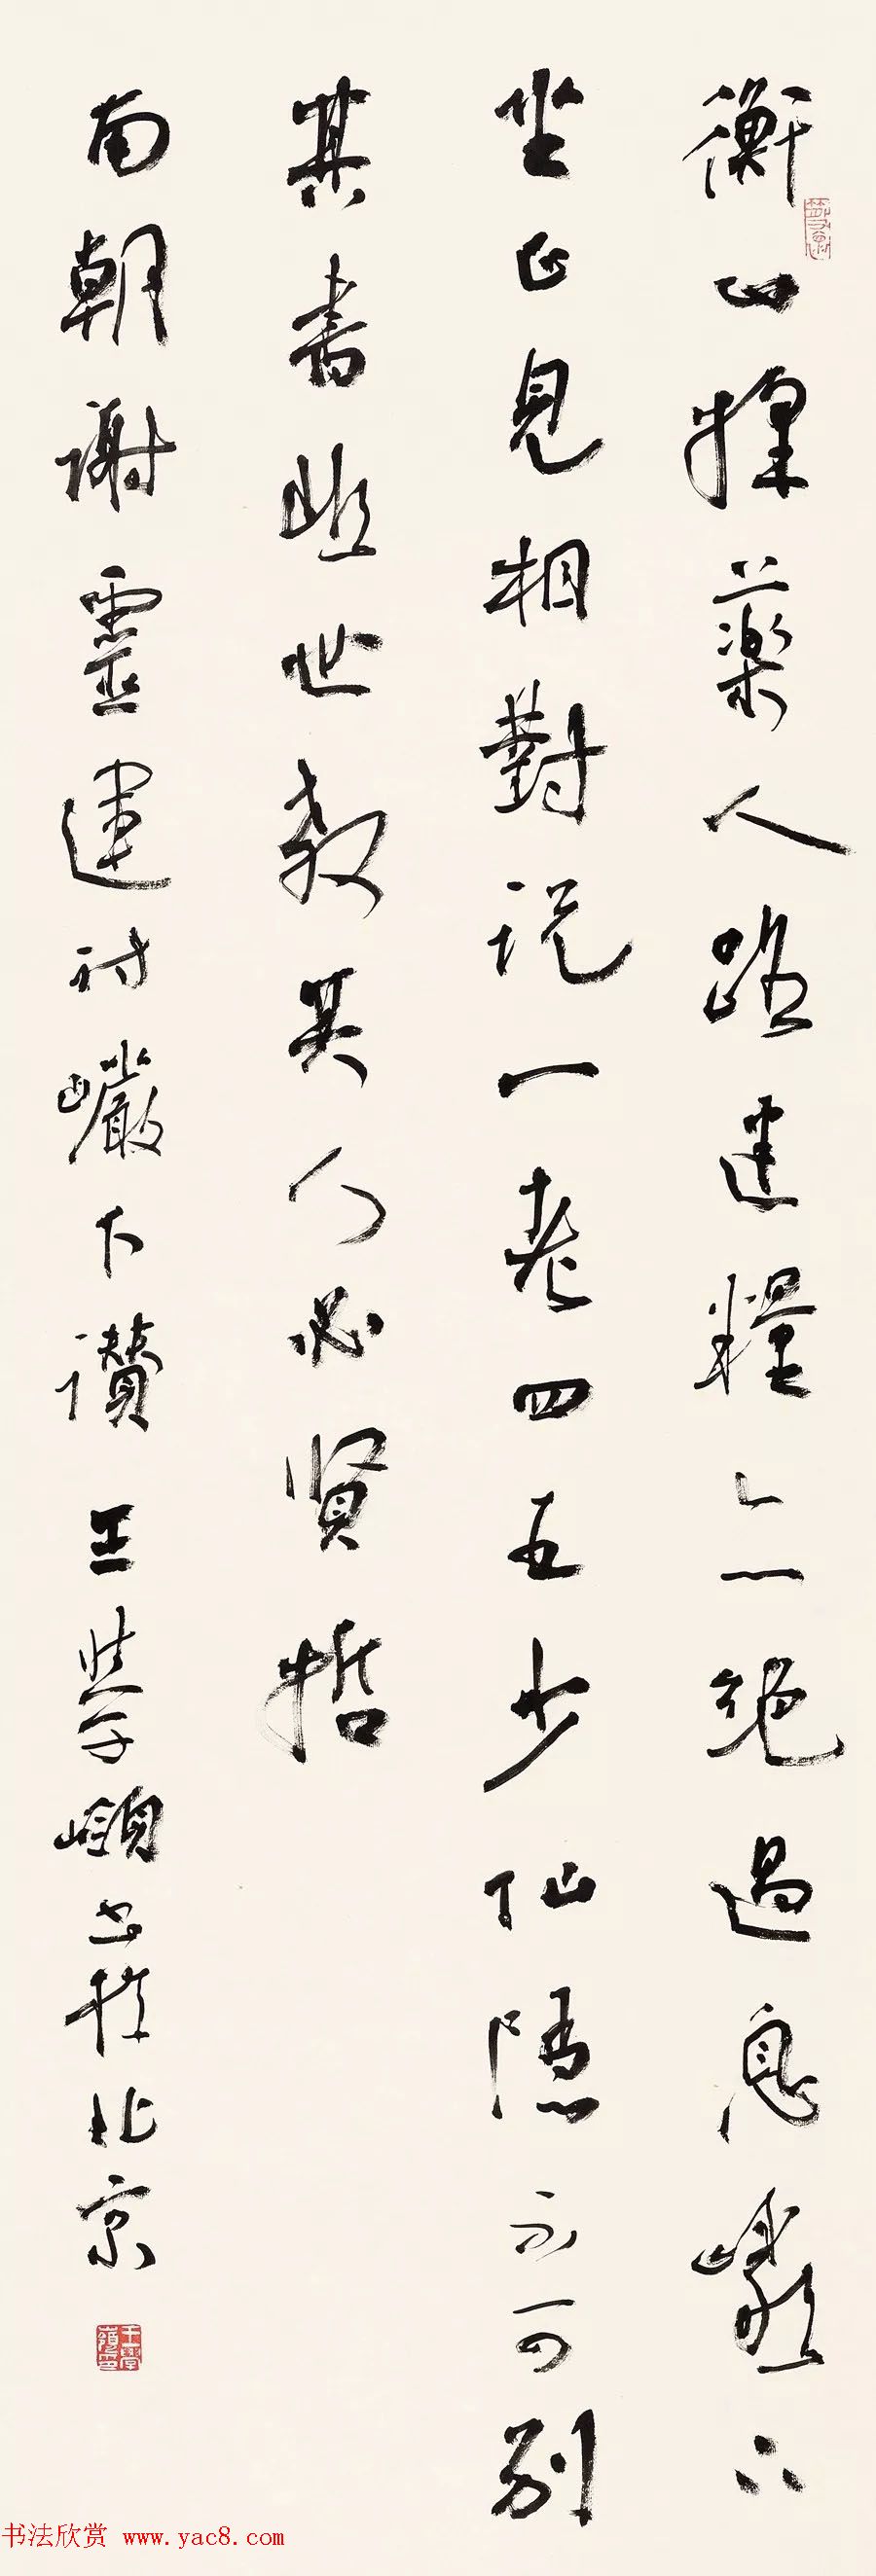 衡山採药人路迷糧亦絕過息巖下
坐正見相對説一老四五少仙隱不可别
其書非世教其人必贤哲
南朝謝靈運詩巖下讚王學嶺書於北京
王學嶺印
书法欣赏 www.yac8.com